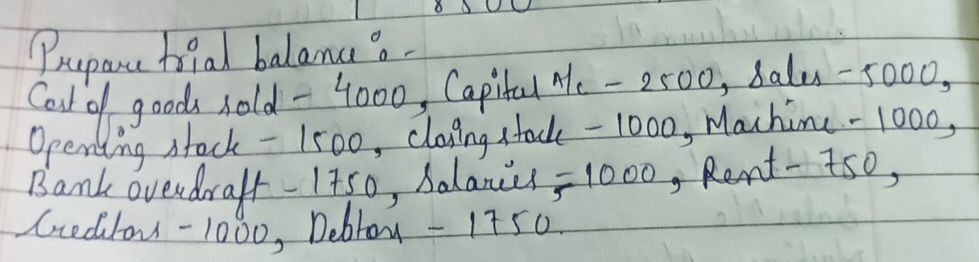 Prepare trial balance :-
Cost of goods sold - 4000, Capital A/c - 2500, Sales - 5000,
Opening stock - 1500, closing stock - 1000, Machine - 1000,
Bank overdraft - 1750, Salaries = 1000, Rent - 750,
Creditors - 1000, Debtors - 1750.